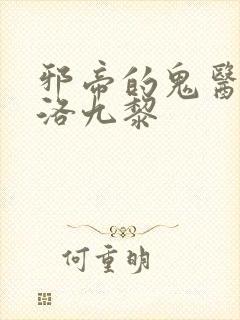 邪帝的鬼醫
洛九黎
何重明